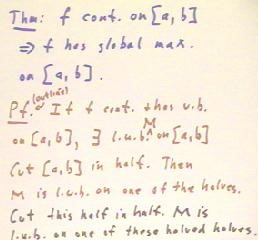 Thm: f cont. on [a, b]
⇒ f has global max.
on [a, b].
Pf. (outline) If f cont. & has u.b.
on [a, b], ∃ l.u.b. M on [a, b]
Cut [a, b] in half. Then
M is l.u.b. on one of the halves.
Cut this half in half. M is
l.u.b. on one of these halved halves.